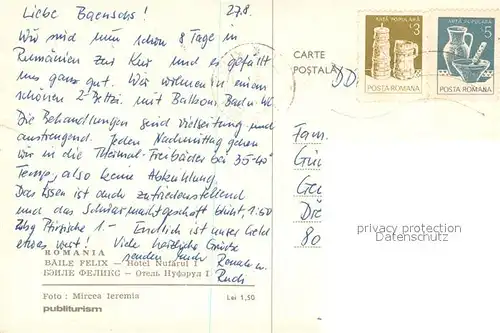 Liebe Baenschs! 27.8.
Wir sind nun schon 8 Tage in
Rumänien zur Kur und es gefällt
uns ganz gut. Wir wohnen in einem
schönen 2-Bettzi. mit Balkon, Bad u. WC
Die Behandlungen sind vielseitig und
anstrengend. Jeden Nachmittag gehen
wir in die Thermal-Freibäder bei 35-40°
Temp., also keine Abkühlung.
Das Essen ist auch zufriedenstellend
und das Schwarzmarktgeschäft blüht, 1:50
2kg Pfirsiche 1.- Endlich ist unser Geld
etwas wert! Viele herzliche Grüße
senden Euch Renate u.
ROMANIA
BĂILE FELIX – Hotel Nufărul I
БЭИЛЕ ФЕЛИКС – Отель Нуфэрул I
Foto : Mircea Ieremia Lei 1,50
publiturism
CARTE
POŞTALĂ
DD
ARTĂ POPULARĂ
3
POSTA ROMANA
ARTĂ POPULARĂ
5
POSTA ROMANA
Fam.
80
privacy protection
Datenschutz